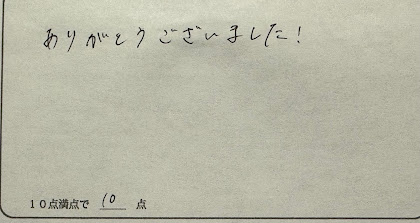 ありがとうございました!
10点満点で 10 点